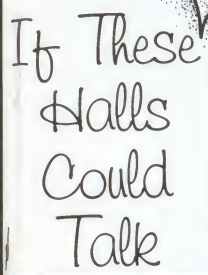 If These
Halls
Could
Talk